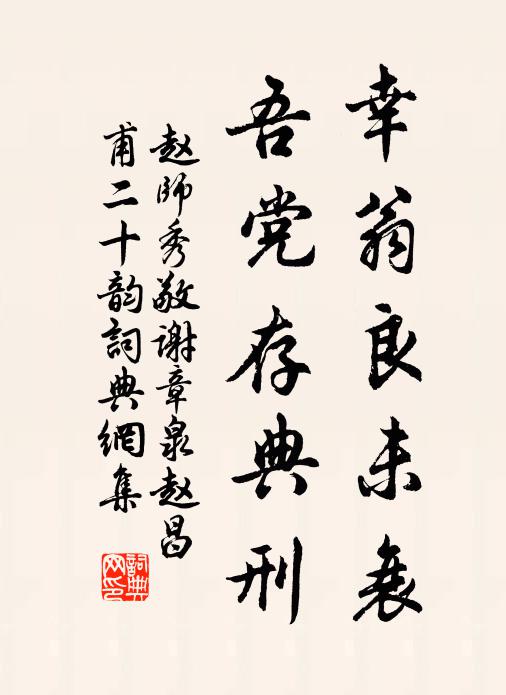 幸翁良未衰
吾党存典刑
赵师秀敬谢章泉赵昌
甫二十韵詞典網集
詞典网印